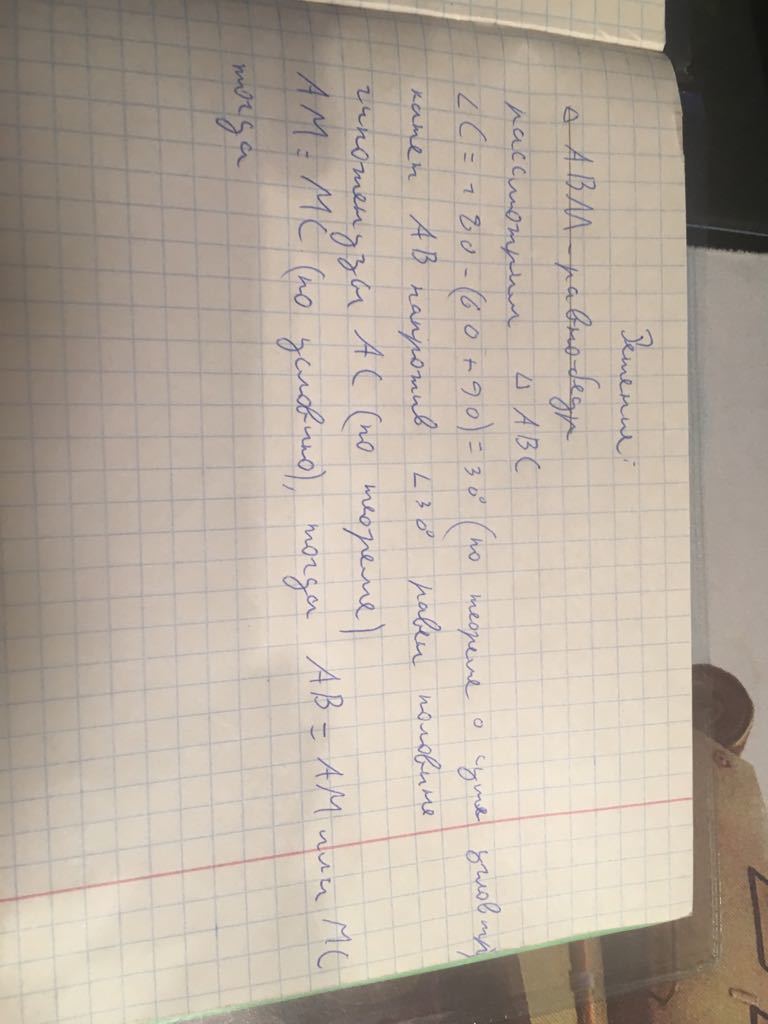 Решение:
△ ABM - равнобедр
рассмотрим △ ABC
∠C = 180 - (60 + 90) = 30° (по теореме о суме углов тр)
катет AB напротив ∠30° равен половине
гипотенузы AC (по теореме)
AM = MC (по условию), тогда AB = AM или MC
тогда